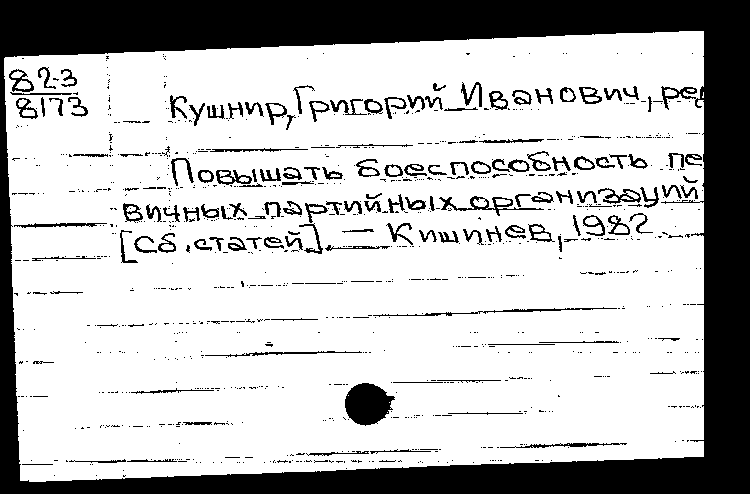 82-3
8173
Кушнир, Григорий Иванович, ре
Повышать боеспособность пе
вичных партийных организаций
[Сб. статей]. — Кишинев, 1982.